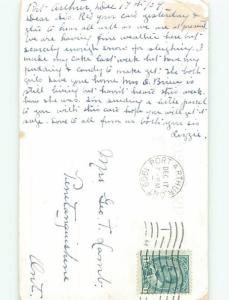 Port Arthur, Dec 17th/09.
Dear Sis. Rec'd your card yesterday &
glad to hear all well as we are at present
We are having fine weather here but
scarcely enough snow for sleighing. I
made my cake last week but have my
pudding & candy to make yet. The both
girls have your home Mrs O. Brien is
still living but havn't heard this week
how she was. I'm sending a little parcel
to you with this card hope you will get it
safe. Love to all from us both, your sis
Lizzie.
Mrs. Geo. T. Lamb.
Penetanguishene
Ont.
PORT ARTHUR
DEC 17